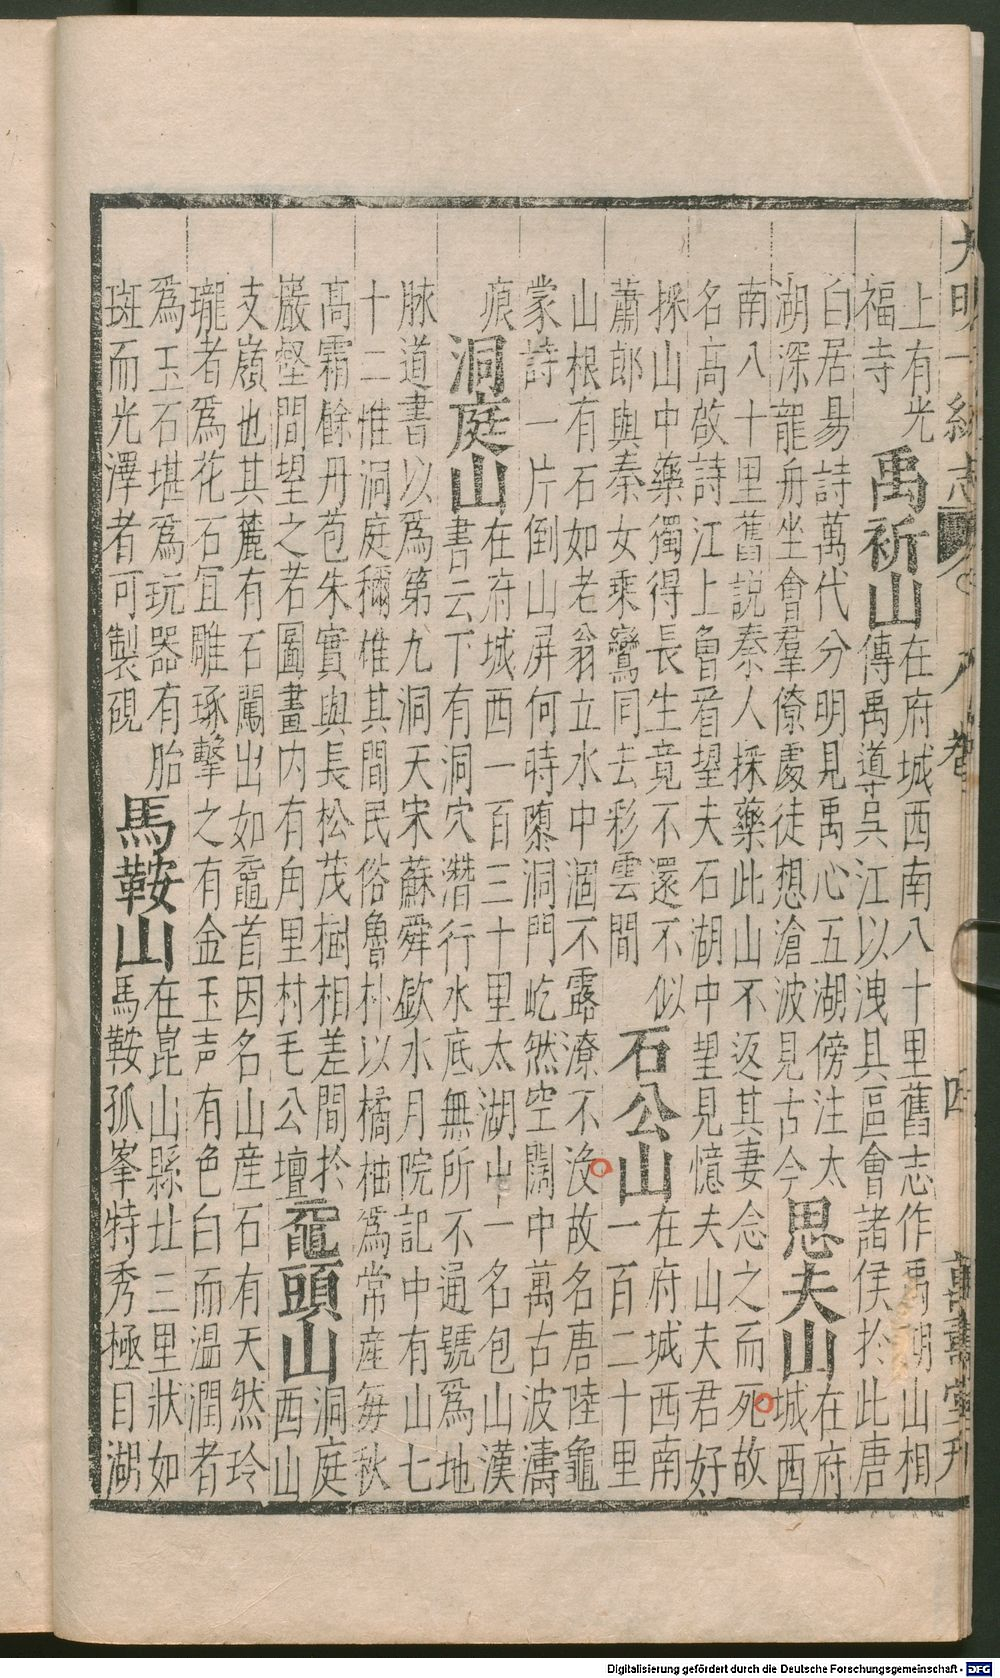 大明一統志 卷之八 四 萬壽堂刊
上有光
福寺
禹祈山
在府城西南八十里舊志作禹期山相
傳禹導吳江以洩具區會諸侯於此唐
白居昜詩萬代分明見禹心五湖傍注太
湖深龍舟坐會羣僚處徒想滄波見古今
思夫山
在府
城西
南八十里舊說秦人採藥此山不返其妻念之而死故
名高啟詩江上曾看望夫石湖中望見憶夫山夫君好
採山中藥獨得長生竟不還不似
蕭郎與秦女乘鸞同去彩雲間
石公山
在府城西南
一百二十里
山根有石如老翁立水中涸不露潦不没故名唐陸龜
蒙詩一片倒山屏何時隳洞門屹然空闊中萬古波濤
痕
洞庭山
在府城西一百三十里太湖中一名包山漢
書云下有洞穴潛行水底無所不通號為地
脉道書以爲第九洞天宋蘇舜欽水月院記中有山七
十二惟洞庭稱雄其間民俗魯朴以橘柚爲常産毎秋
高霜餘丹苞朱實與長松茂樹相差間於
巖壑間望之若圖畫内有角里村毛公壇
黿頭山
洞庭
西山
支嶺也其麓有石闖出如黿首因名山産石有天然玲
瓏者爲花石宜雕琢擊之有金玉声有色白而温潤者
爲玉石堪爲玩器有胎
斑而光澤者可製硯
馬鞍山
在崑山縣址三里狀如
馬鞍孤峯特秀極目湖
Digitalisierung gefördert durch die Deutsche Forschungsgemeinschaft - DFG